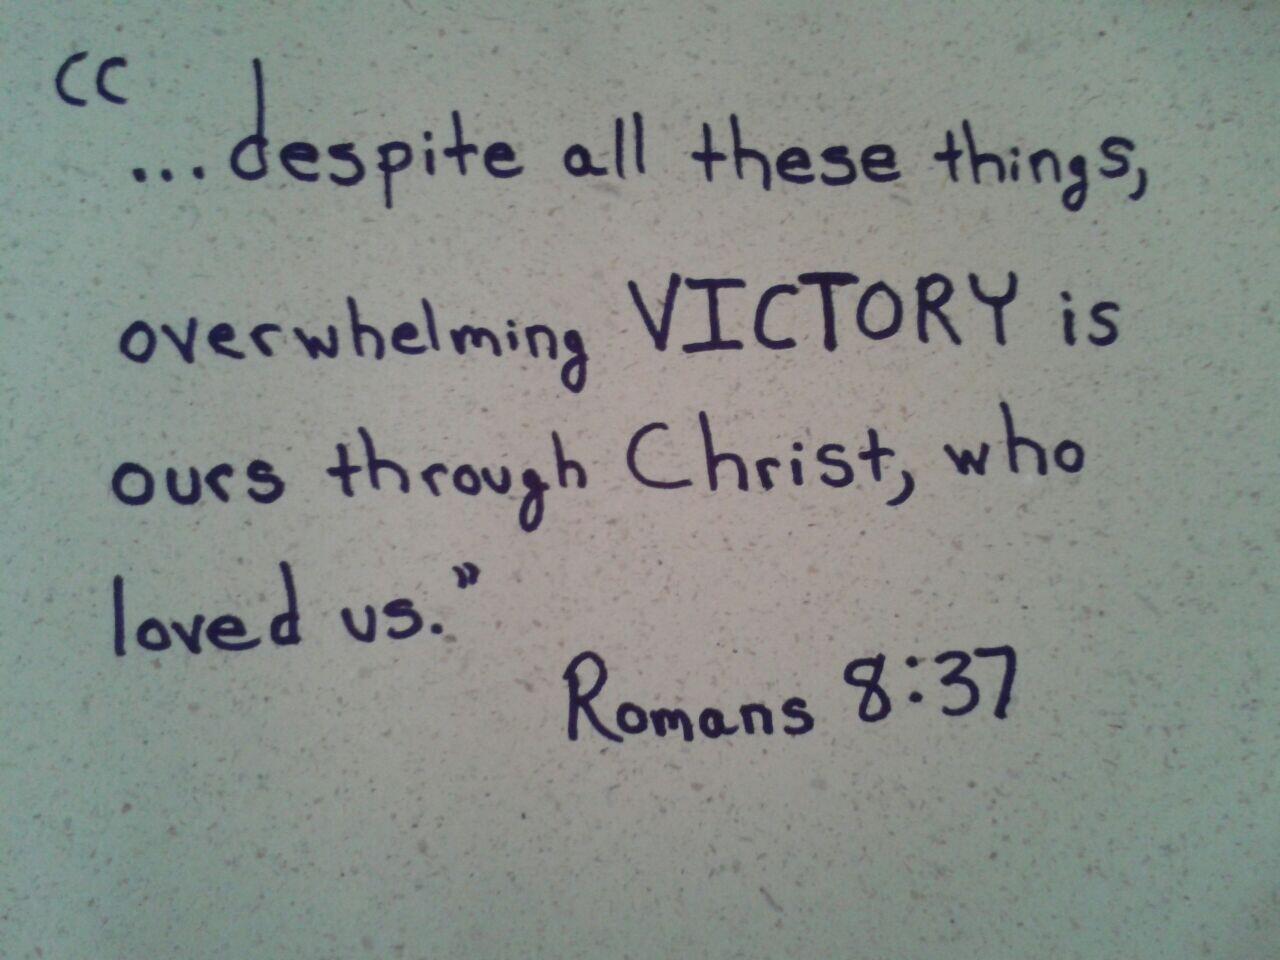 “...despite all these things,
overwhelming VICTORY is
ours through Christ, who
loved us.”
Romans 8:37